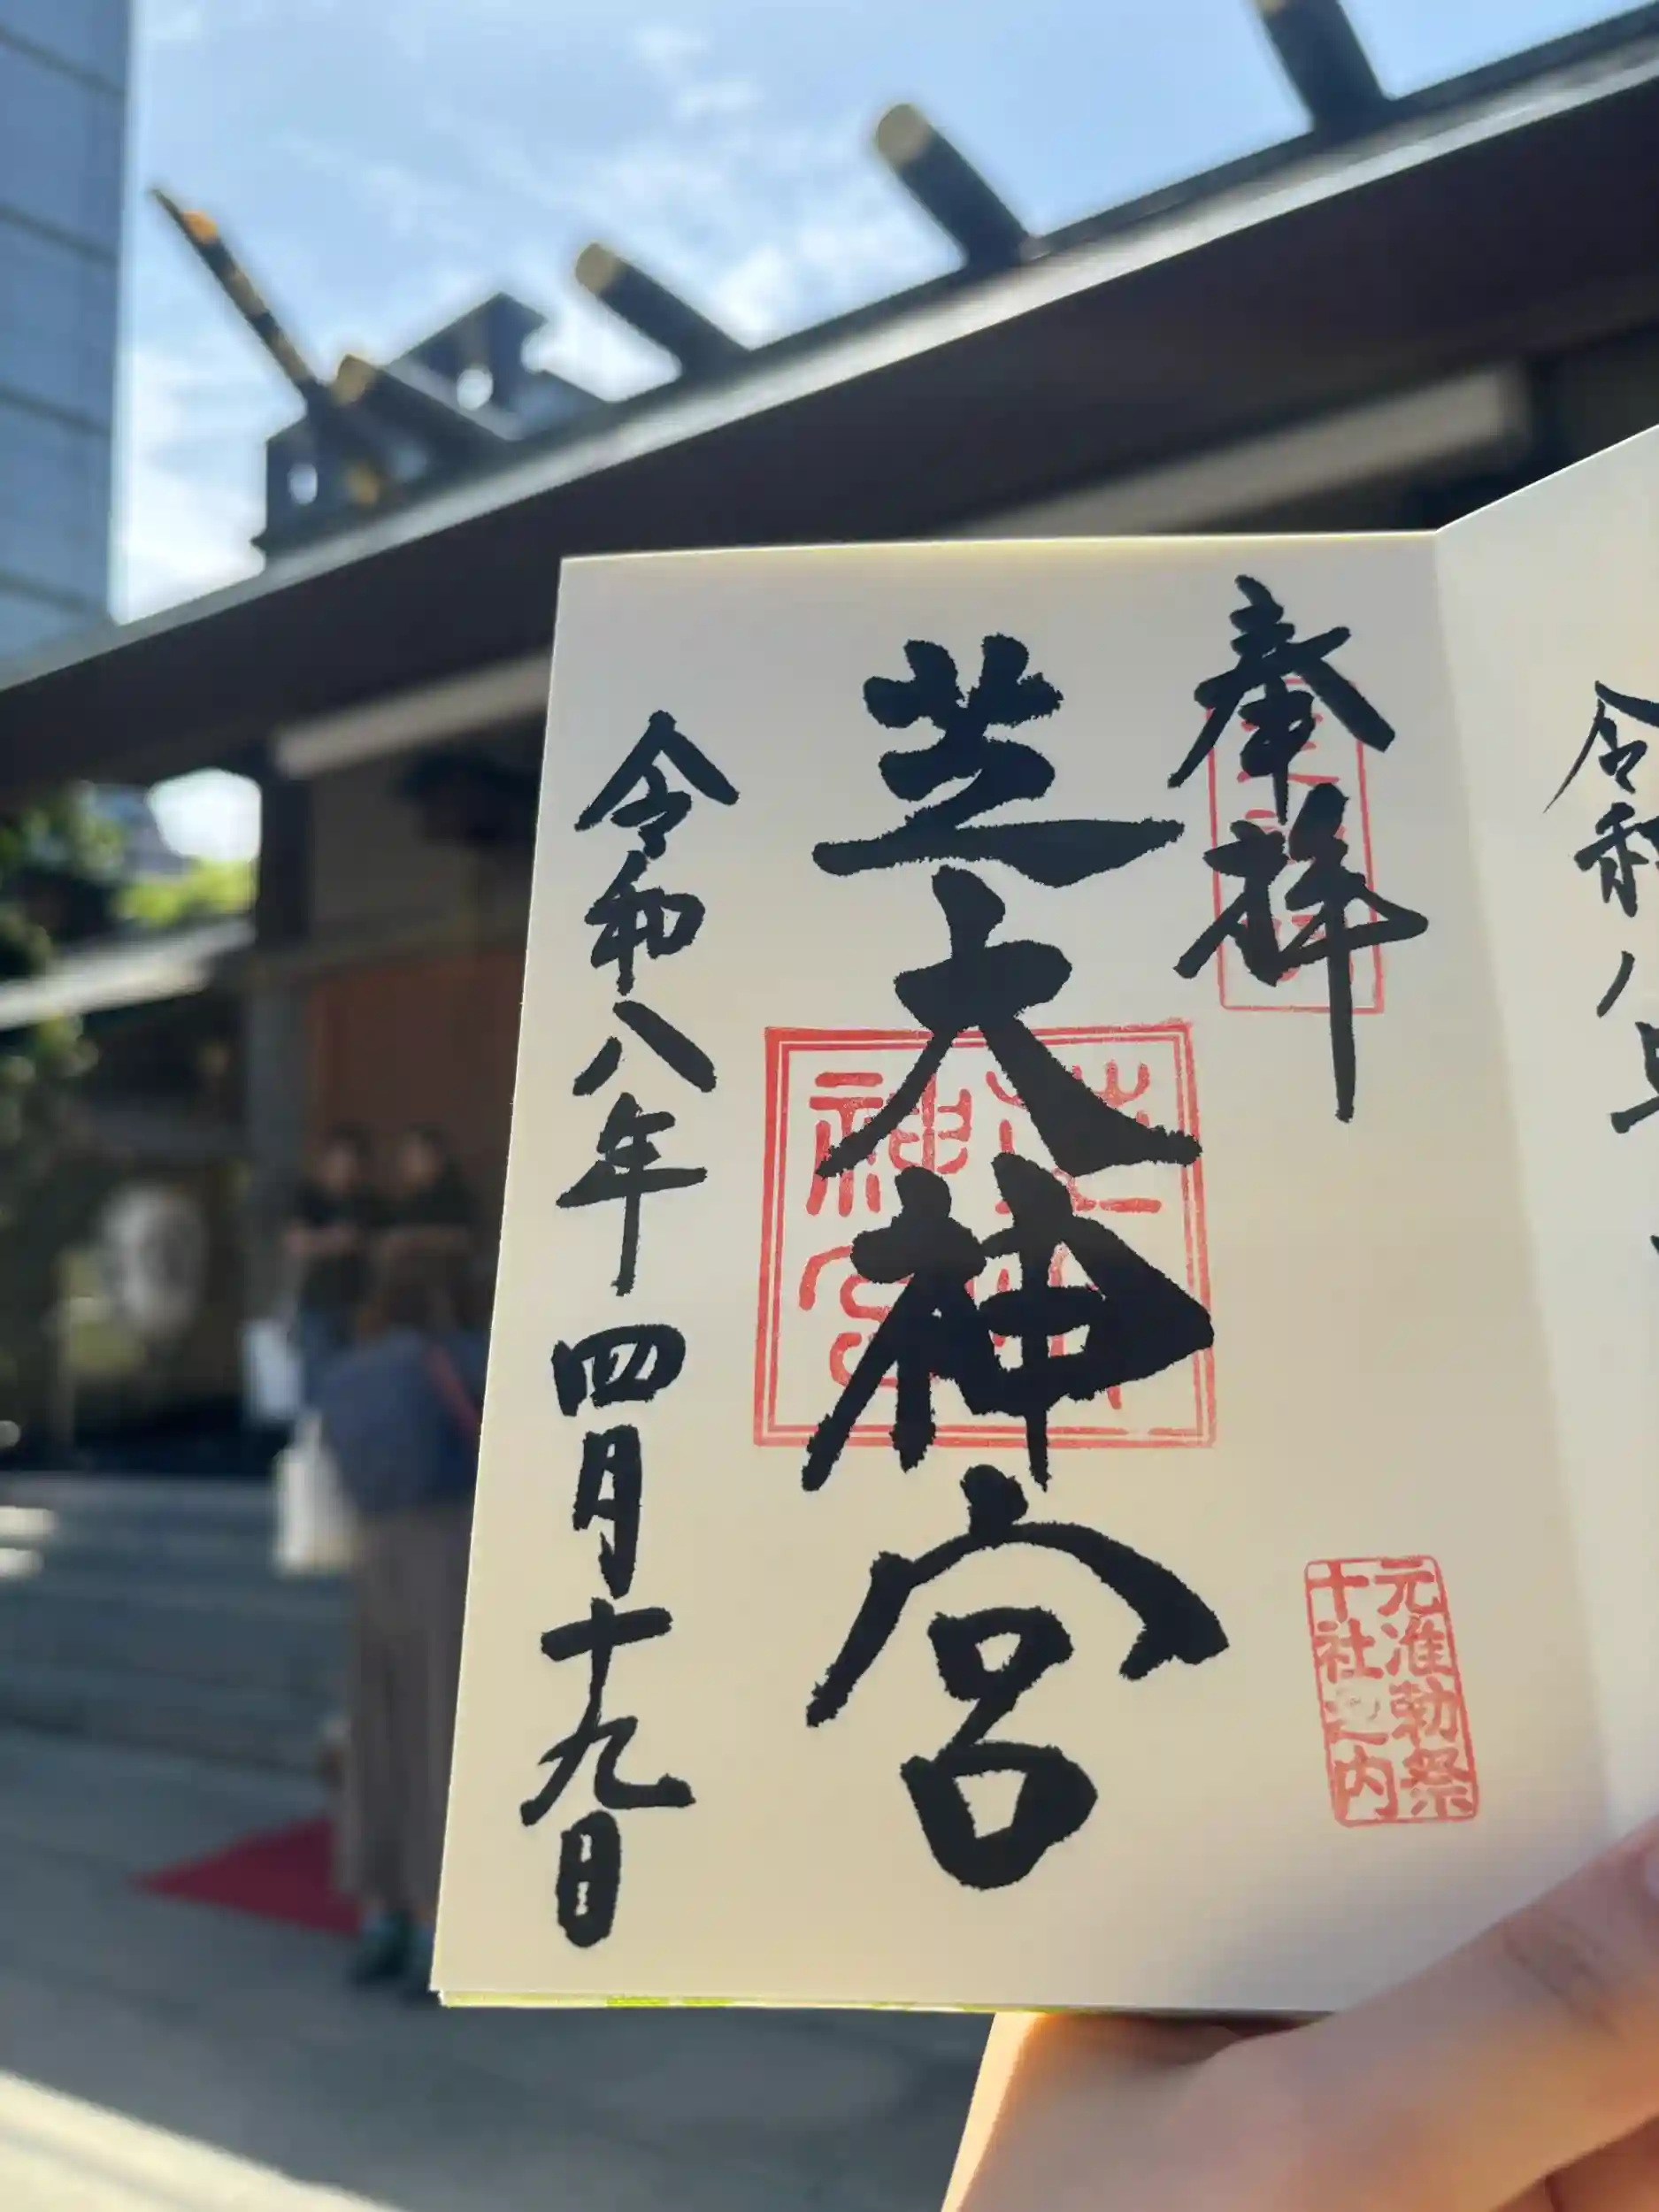 令和八
奉拝
芝大神宮
元准勅祭
十社之内
令和八年四月十九日